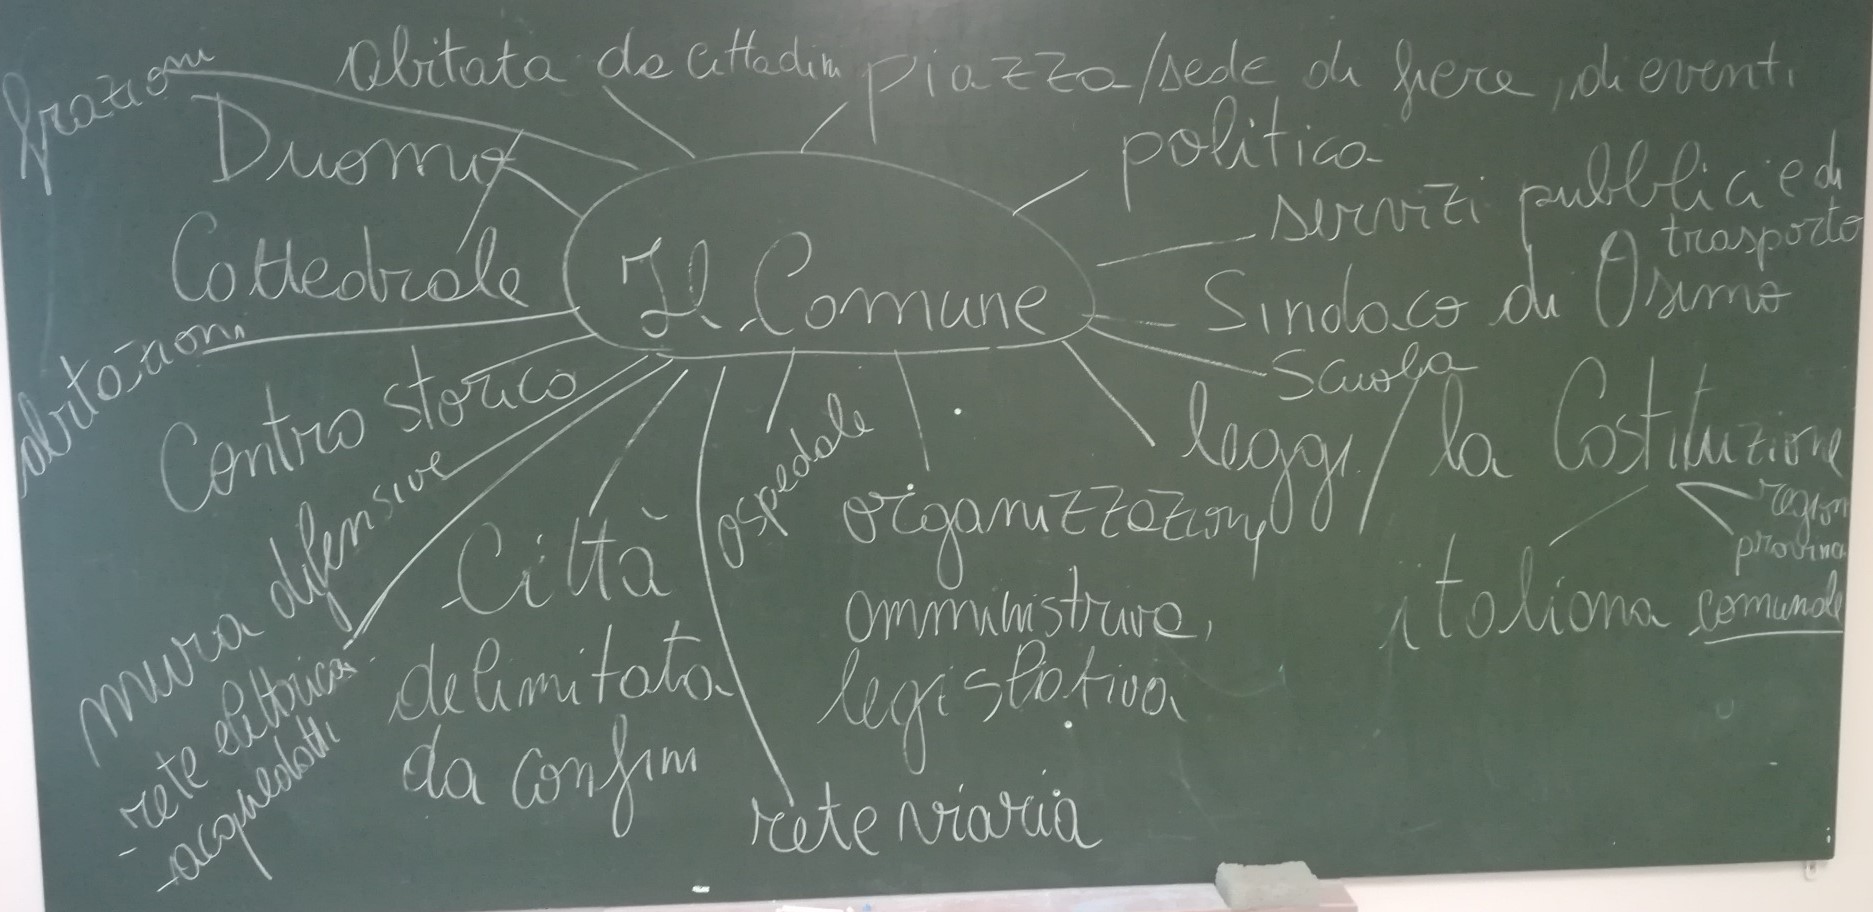 frazioni
abitata da cittadini
piazza/sede di fiere, di eventi
Duomo
politica
servizi pubblici e di
trasporto
Cattedrale
Il Comune
Sindaco di Osimo
abitazioni
Scuola
Centro storico
leggi / la Costituzione
italiana
regioni
provincia
comunale
mura difensive
ospedale
organizzazione
amministrativa,
legislativa
Città
delimitata
da confini
- rete elettrica
- acquedotti
rete viaria